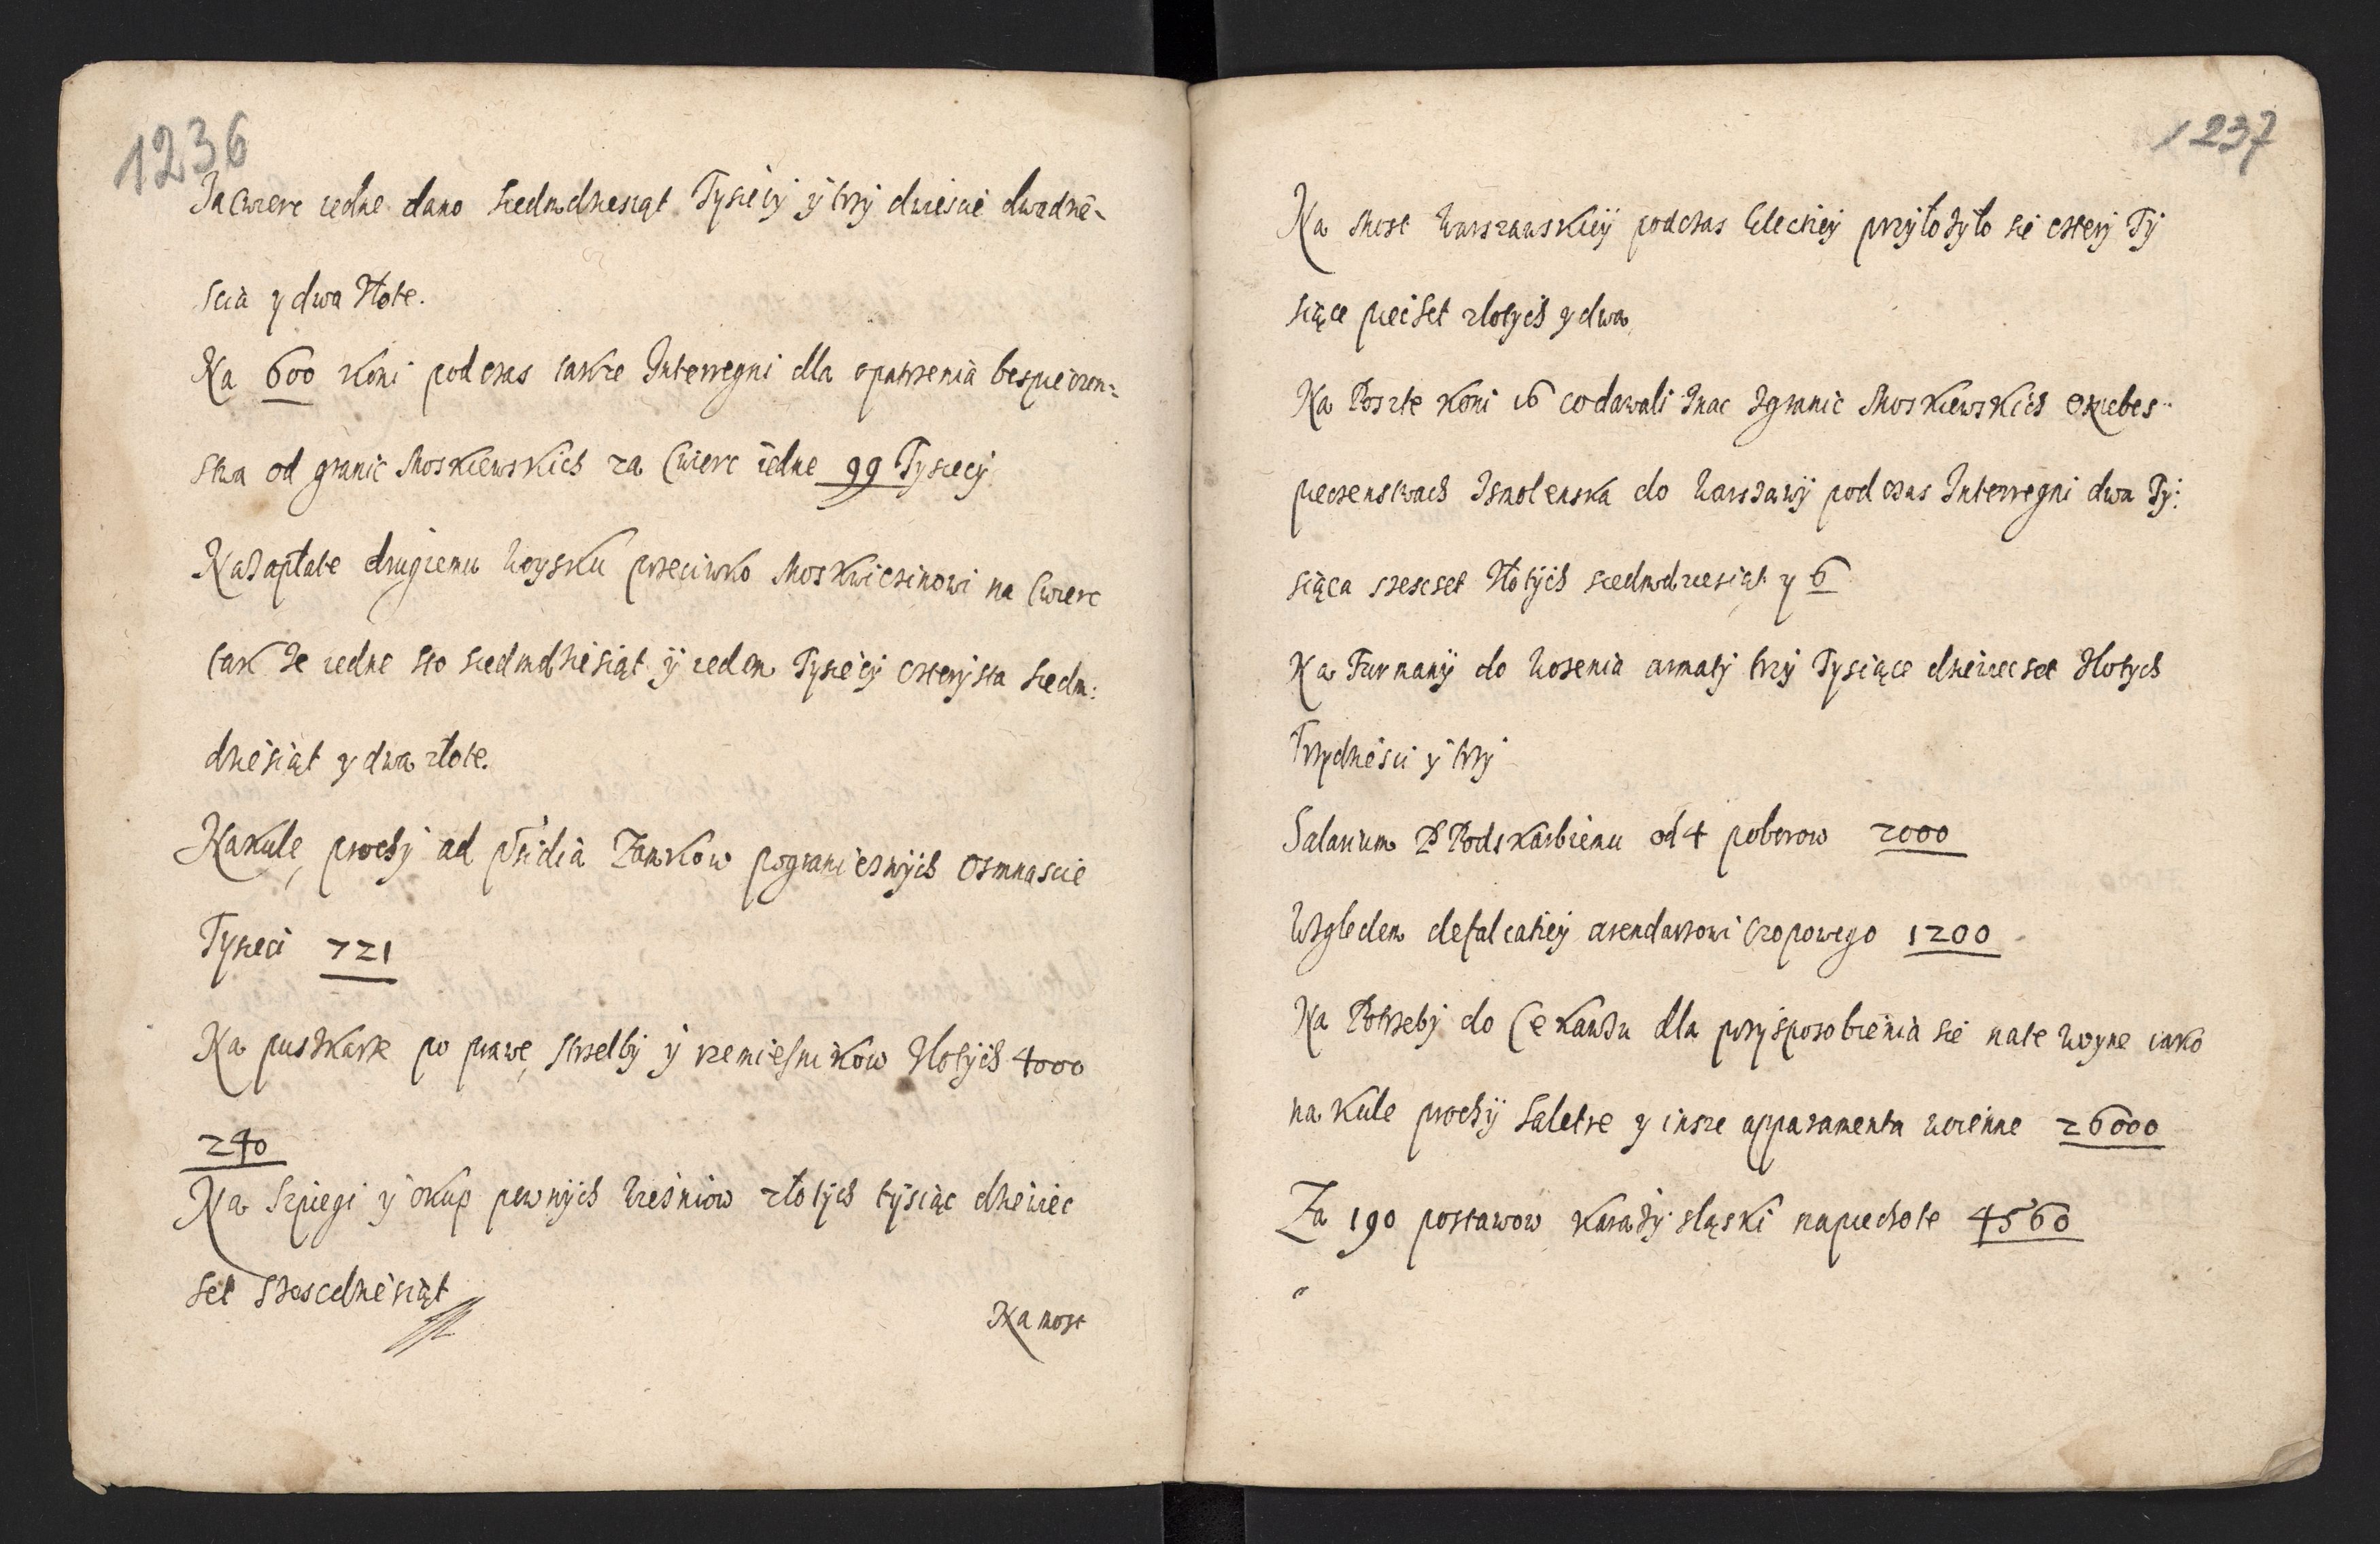 1236
Za cwierc iedne dano siedmdziesiąt Tysięcy y trzy dwiescie dwadzie-
scia y dwa złote.
Na 600 koni pod czas takze Interregni dla opatrzenia bespieczen:
stwa od granic Moskiewskich za Cwierc iedne 99 Tysiecy
Na zapłate drugiemu woysku przeciwko Moskwicinowi na Cwierc
tak ze iedne sto siedmdziesiąt y ieden Tysięcy czterysta siedm:
dziesiąt y dwa złote.
Na kule, prochy ad psidia Zamkow pogranicznych osmnascie
Tysieci 721
Na puszkarze po prawe, strzelby y rzemiesnikow złotych 4000
240
Na Szpiegi y okup pewnych więzniow złotych tysiąc dziewiec
set szescdziesiąt
Na most
1237
Na Most Warszawskiy podczas Electiey przyłozyło sie cztery Ty
siące piecset złotych y dwa
Na Poszte koni 16 co dawali znac z granic Moskiewskich o niebes-
pieczenstwach z Smolenska do Warszawy pod czas Interregni dwa Ty:
siąca szescset złotych siedmdziesiąt y 6
Na Furmany do wozenia armaty trzy Tysiące dziewiecset złotych
Trzydziesci y trzy
Salarium P Podskarbiemu od 4 poborow 2000
Wzgledem defalcatiey arendarzowi Czopowego 1200
Na Potrzeby do Cekauzu dla przysposobienia sie na te woyne iako
na kule prochy Saletre y insze apparamenta woienne 26000
Za 190 postawow karazy sląski na piechote 4560